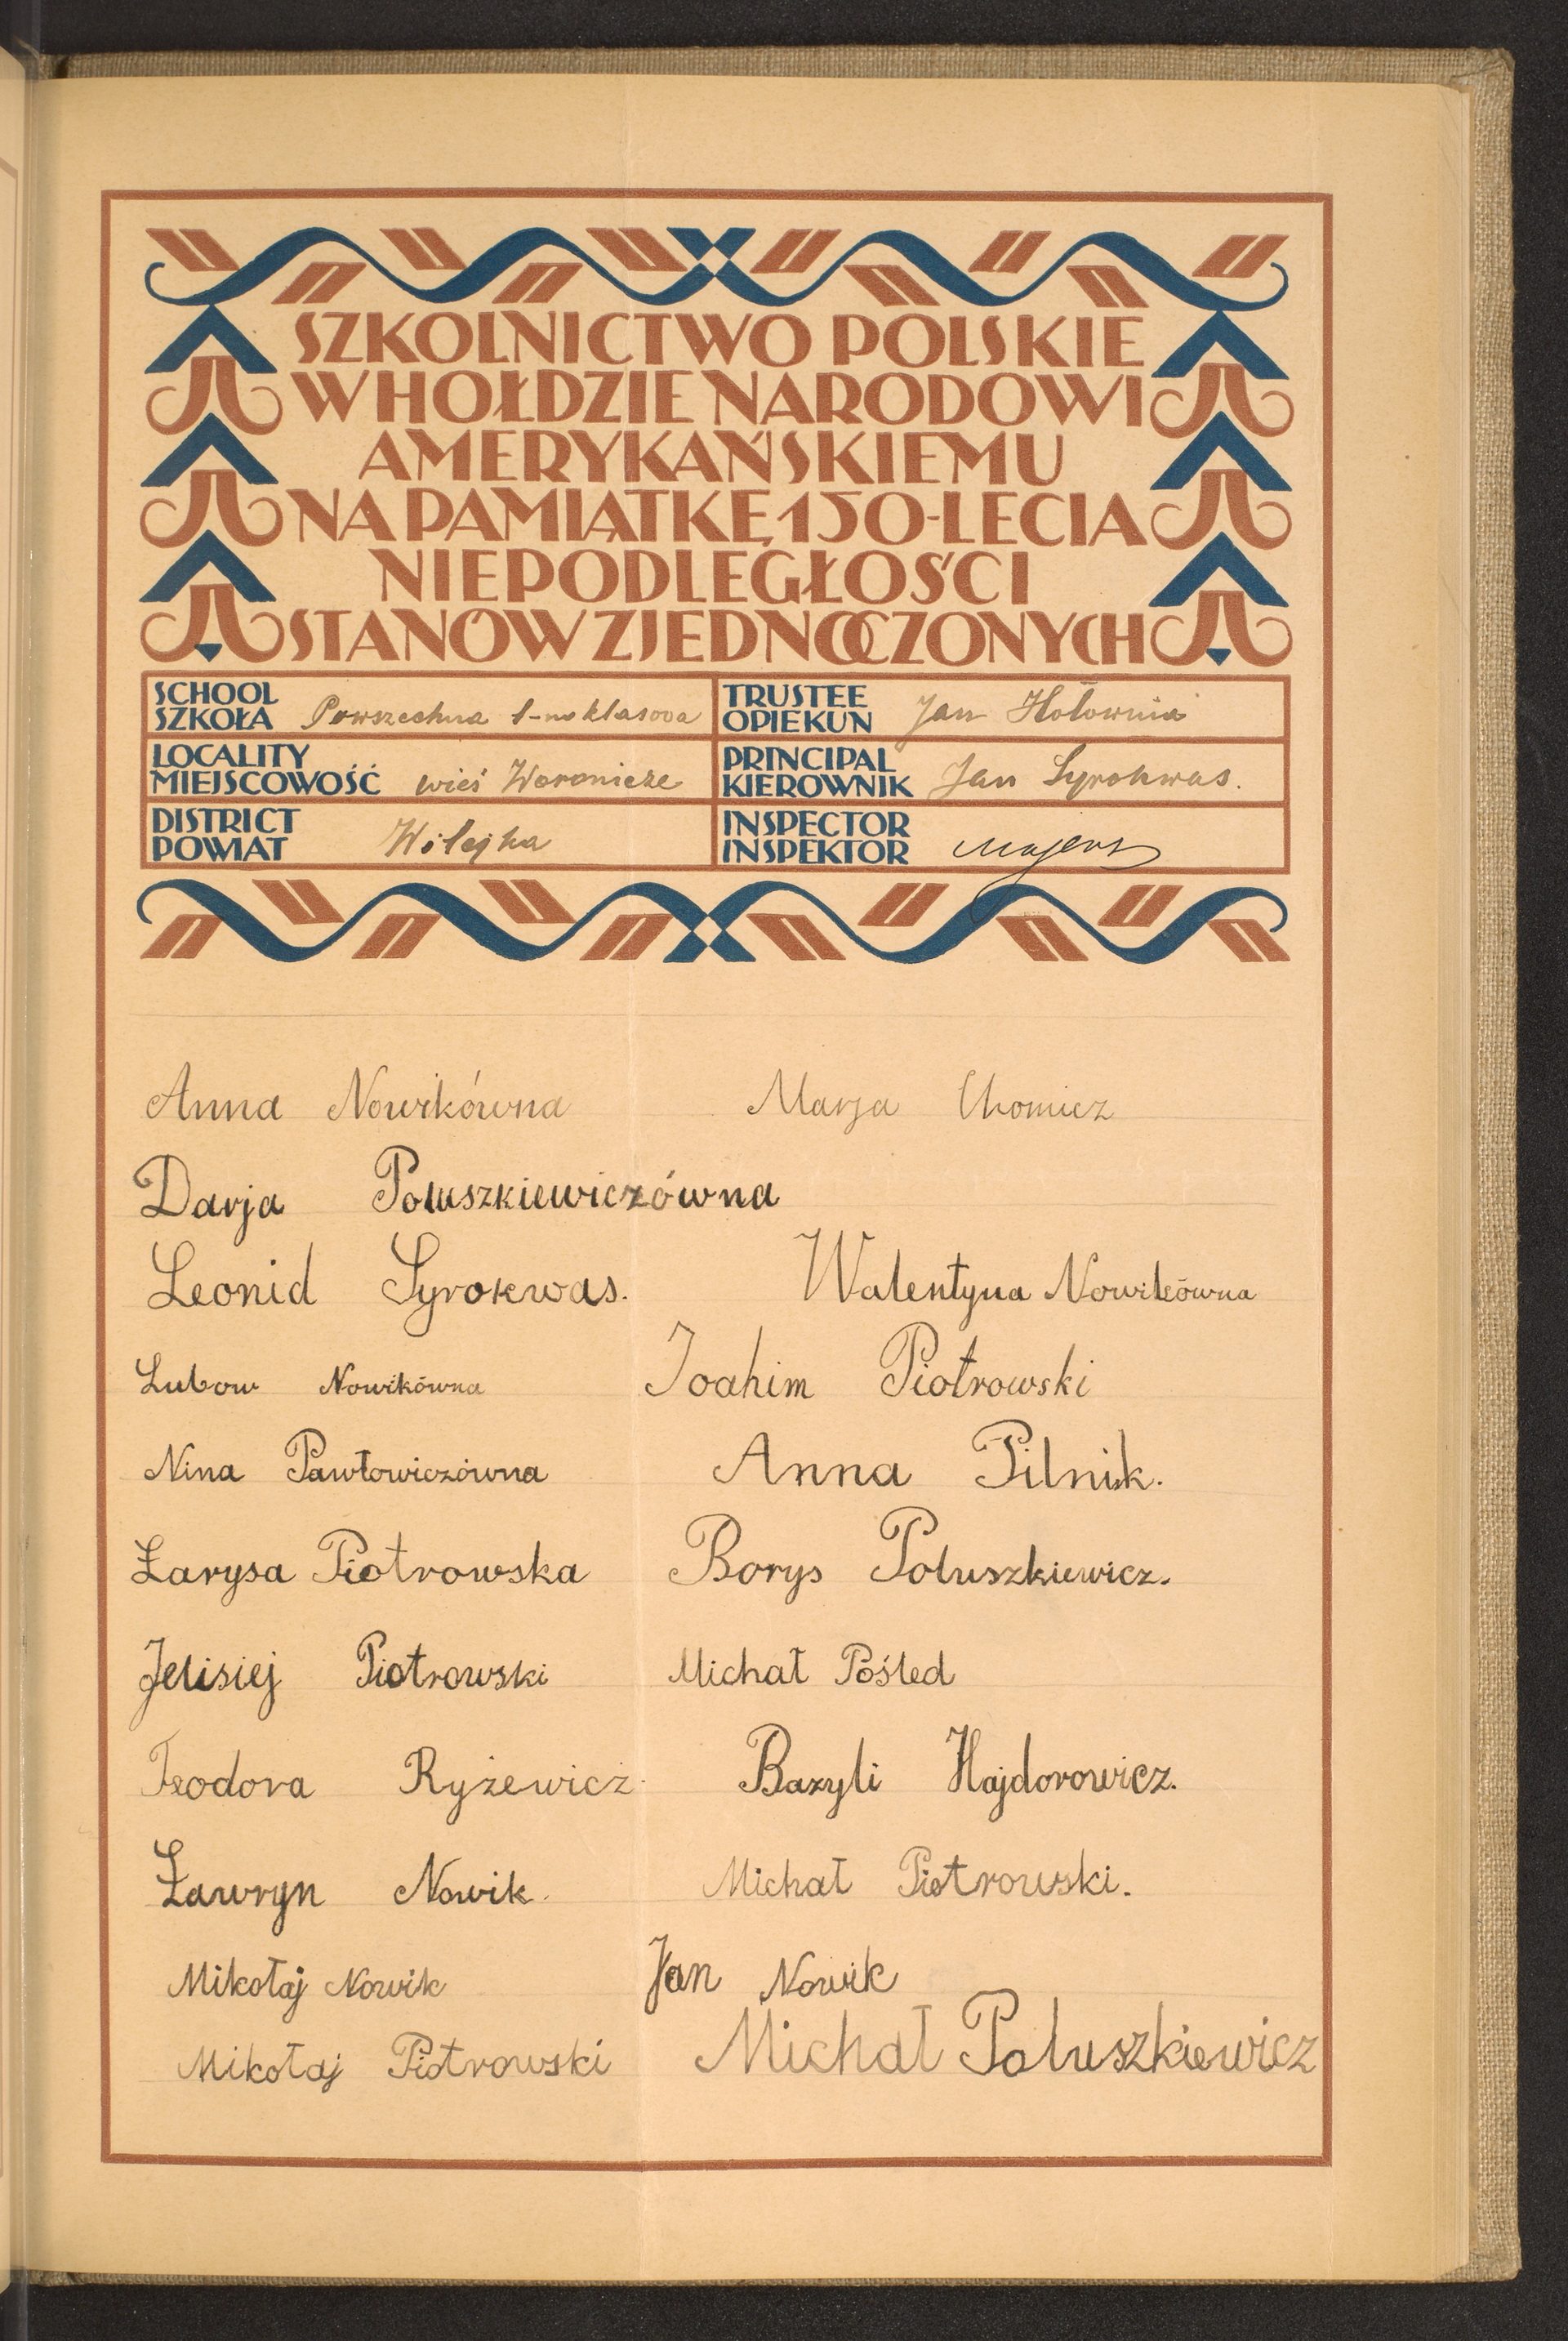 SZKOLNICTWO POLSKIE
W HOŁDZIE NARODOWI
AMERYKAŃSKIEMU
NA PAMIĄTKĘ 150-LECIA
NIEPODLEGŁOŚCI
STANÓW ZJEDNOCZONYCH
SCHOOL
SZKOŁA Powszechna 1-no klasowa
TRUSTEE
OPIEKUN Jan Hołownia
LOCALITY
MIEJSCOWOŚĆ wieś Woronicze
PRINCIPAL
KIEROWNIK Jan Syrokwas.
DISTRICT
POWIAT Wilejka
INSPECTOR
INSPEKTOR
Anna Nowikówna Marja Chomicz
Darja Połuszkiewiczówna
Leonid Syrokwas. Walentyna Nowikówna
Lubow Nowikówna Joahim Piotrowski
Nina Pawłowiczówna Anna Pilnik.
Łarysa Piotrowska Borys Poluszkiewicz.
Jelisiej Piotrowski Michał Pośled
Teodora Ryżewicz Bazyli Hajdorowicz.
Ławryn Nowik. Michał Piotrowski.
Mikołaj Nowik Jan Nowik
Mikołaj Piotrowski Michał Poluszkiewicz